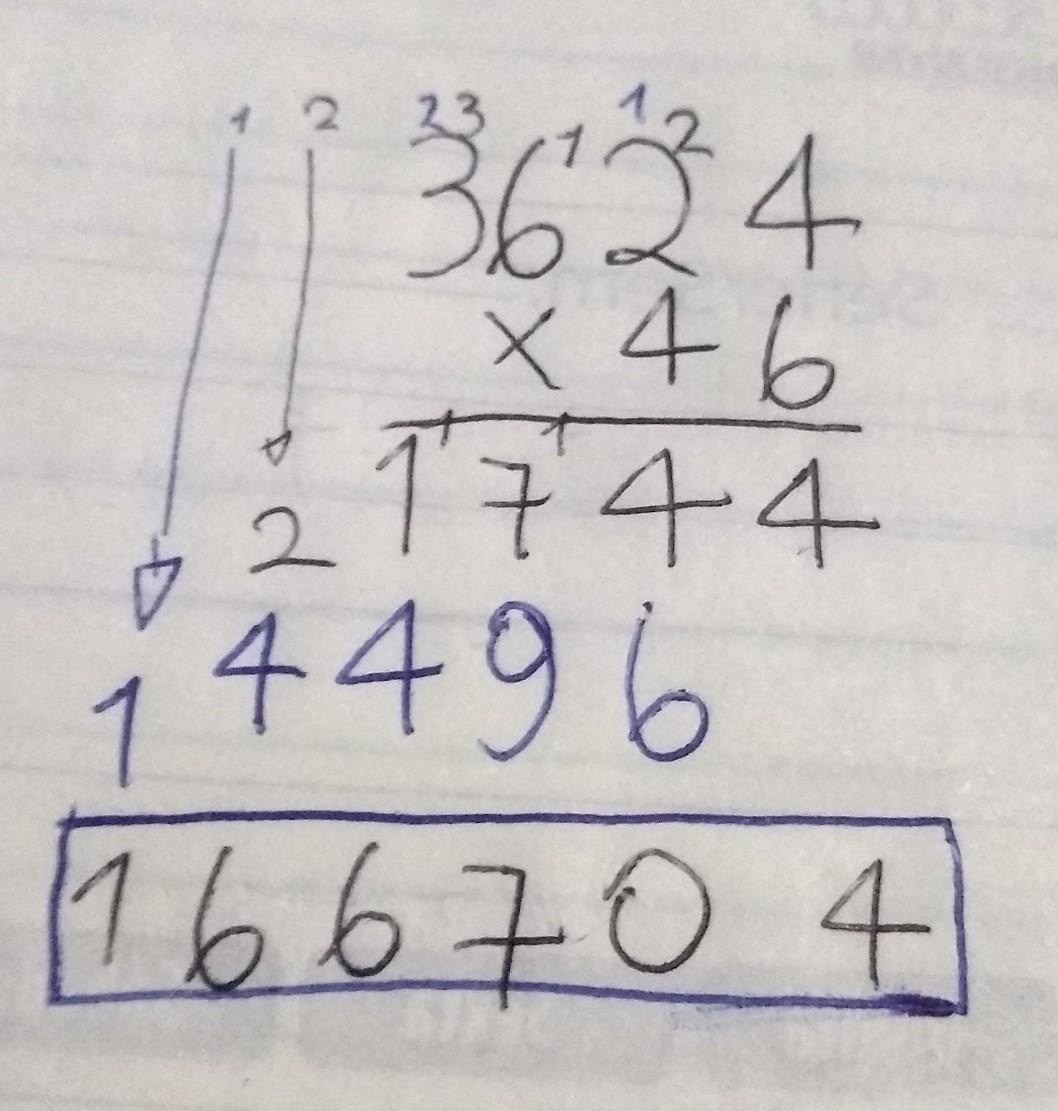 1 2 23 1 1 2
3624
× 46
21744
14496
166704